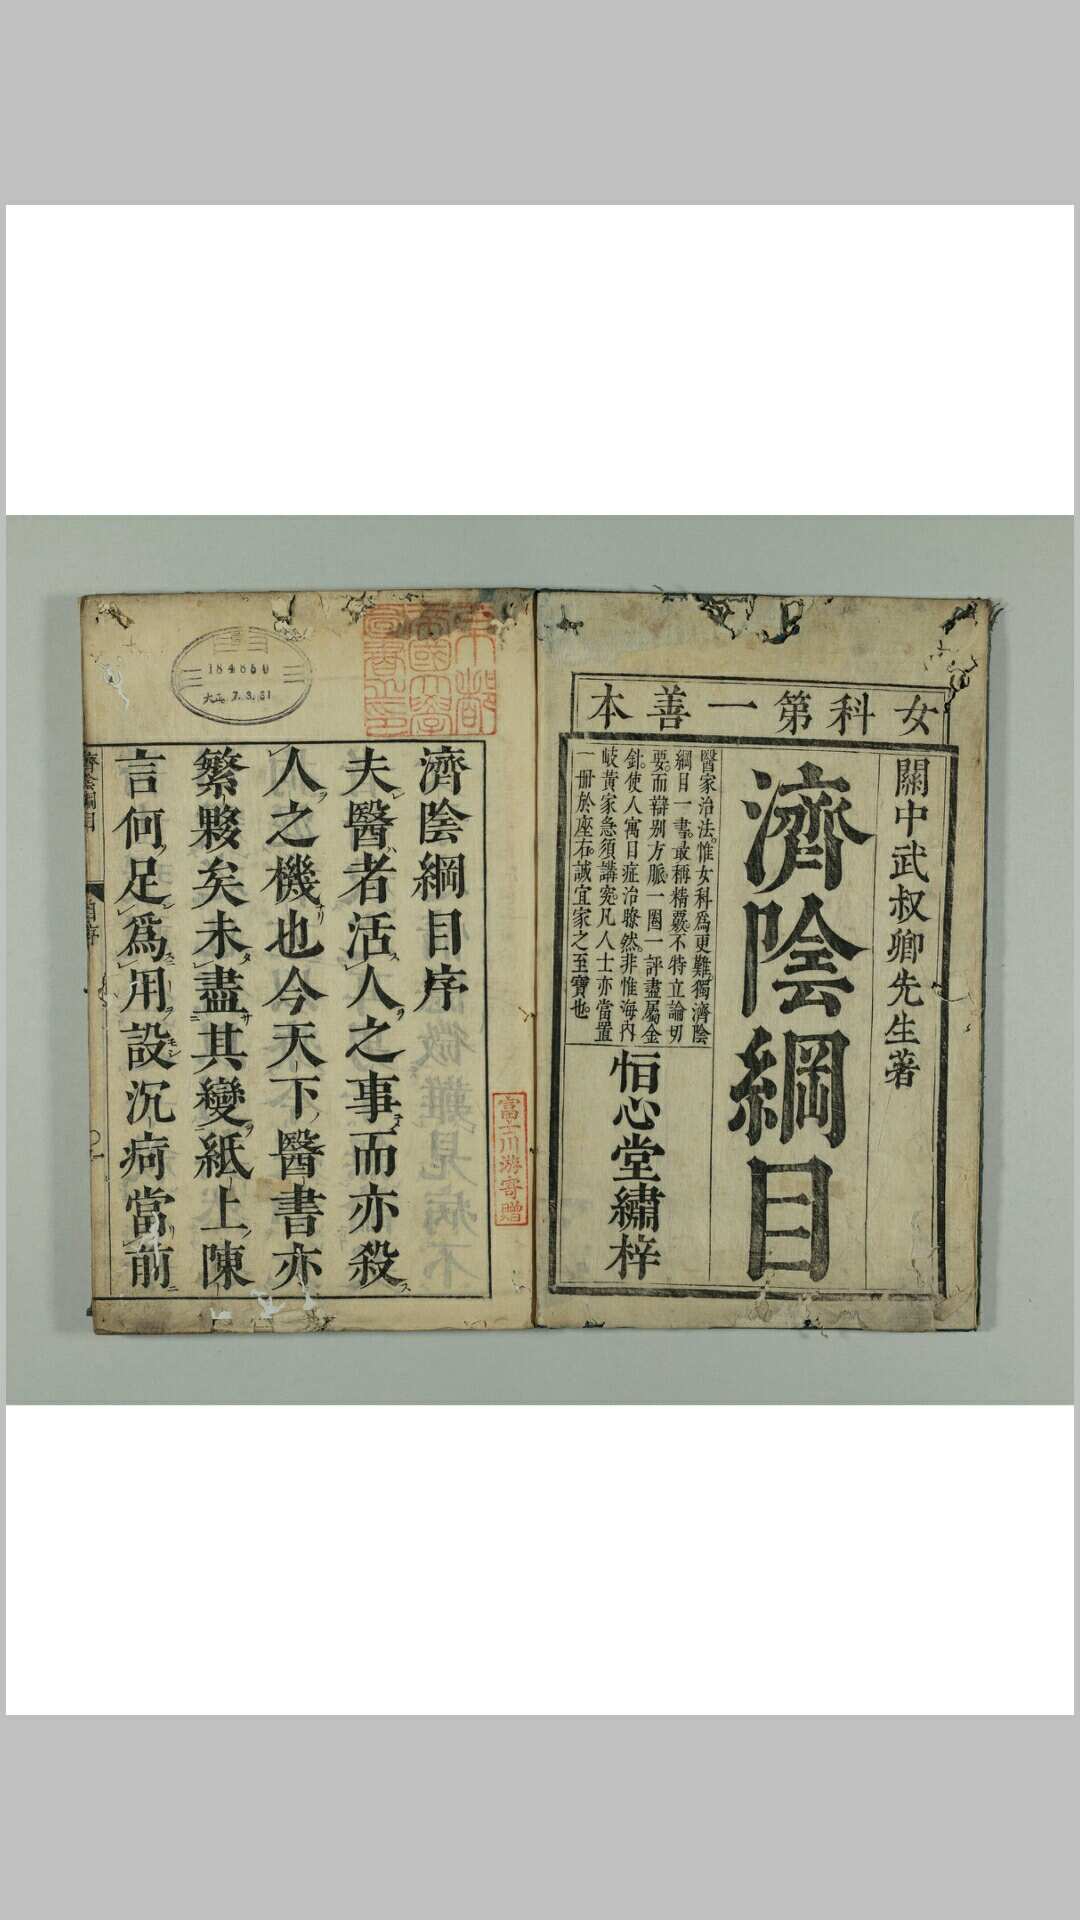 女科第一善本
關中武叔卿先生著
濟陰綱目
醫家治法。惟女科爲更難。獨濟陰
綱目一書。最稱精覈。不特立論切
要。而辯别方脈一圈一評盡屬金
針。使人寓目症治瞭然。非惟海内
岐黄家急須講究。凡人士亦當置
一冊於座右。誠宜家之至寶也。
恒心堂繡梓
京都
帝國大學
圖書之印
184850
大正 7. 3. 31
富士川游寄贈
濟陰綱目序
夫醫者活人之事而亦殺
人之機也今天下醫書亦
繁夥矣未盡其變紙上陳
言何足爲用設沉痾當前
濟陰綱目
自序
一